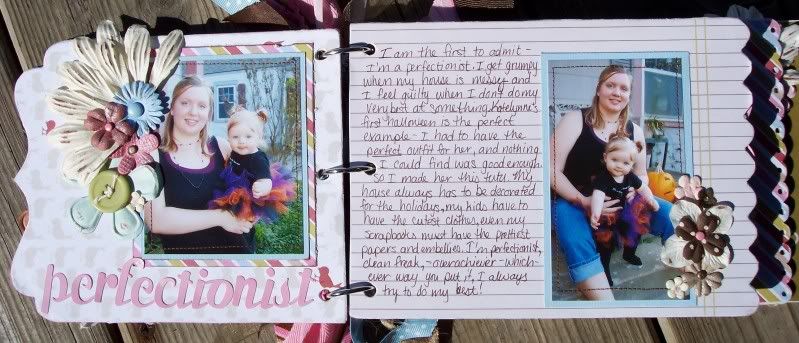 perfectionist
I am the first to admit -
I'm a perfectionist. I get grumpy
when my house is messy and
I feel guilty when I don't do my
very best at something. Katelynne's
first halloween is the perfect
example - I had to have the
perfect outfit for her, and nothing
I could find was good enough.
so I made her this tutu. My
house always has to be decorated
for the holidays, my kids have to
have the cutest clothes, even my
scrapbooks must have the prettiest
papers and embellies. I'm perfectionist,
clean freak, - overachiever - which-
ever way you put it, I always
try to do my best!